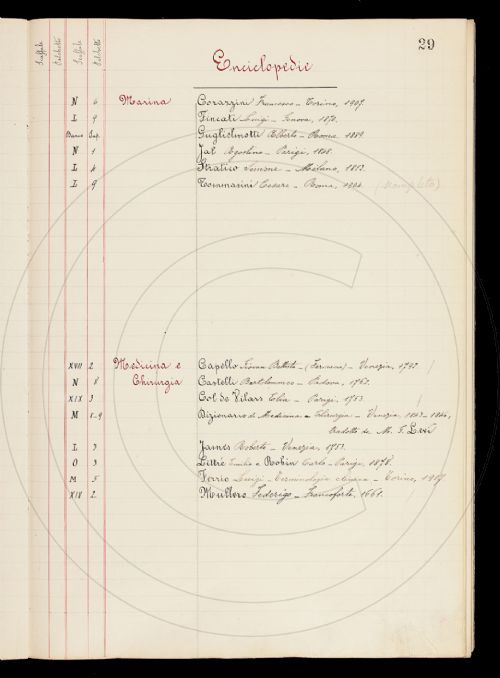 29
Enciclopedie
Scaffale Palchetto Scaffale Palchetto
N 6 Marina Corazzini Francesco - Torino, 1907.
L 9 Fincati Luigi - Genova, 1870.
Banco Sup. Guglielmotti Alberto - Roma, 1889
N 1 Jal Agostino - Parigi, 1848.
L 4 Stratico Simone - Milano, 1813.
L 9 Tommasini Cesare - Roma, (incompleto)
XVII 2 Medicina e Capello Giovan Battista - - Venezia,
N 8 Chirurgia Castelli Bartolommeo - Padova, 1762.
XIX 3 Col de Vilars Elia - Parigi, 1753.
M 8-9 Dizionario di Medicina e Chirurgia - Venezia
tradotto da M. G. Levi
L 3 James Roberto - Venezia, 1753.
O 3 Littré Emilio e Robin Carlo - Parigi, 1878.
M 5 Ferrio Luigi - Terminologia clinica - Torino,
XIX 2 Mullero Federigo - Francoforte, 1661.